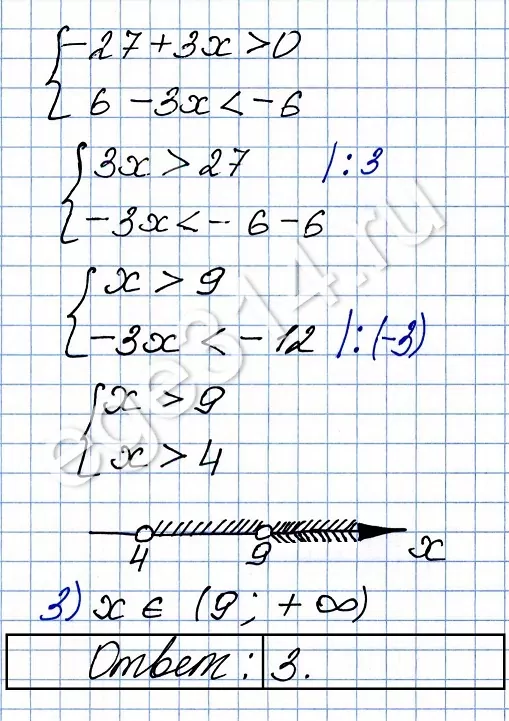 { -27 + 3x > 0
6 - 3x < -6
{ 3x > 27 |:3
-3x < - 6 - 6
{ x > 9
-3x < -12 |:(-3)
{ x > 9
x > 4
4 9 x
3) x ∈ (9; +∞)
Ответ: 3.
ege314.ru